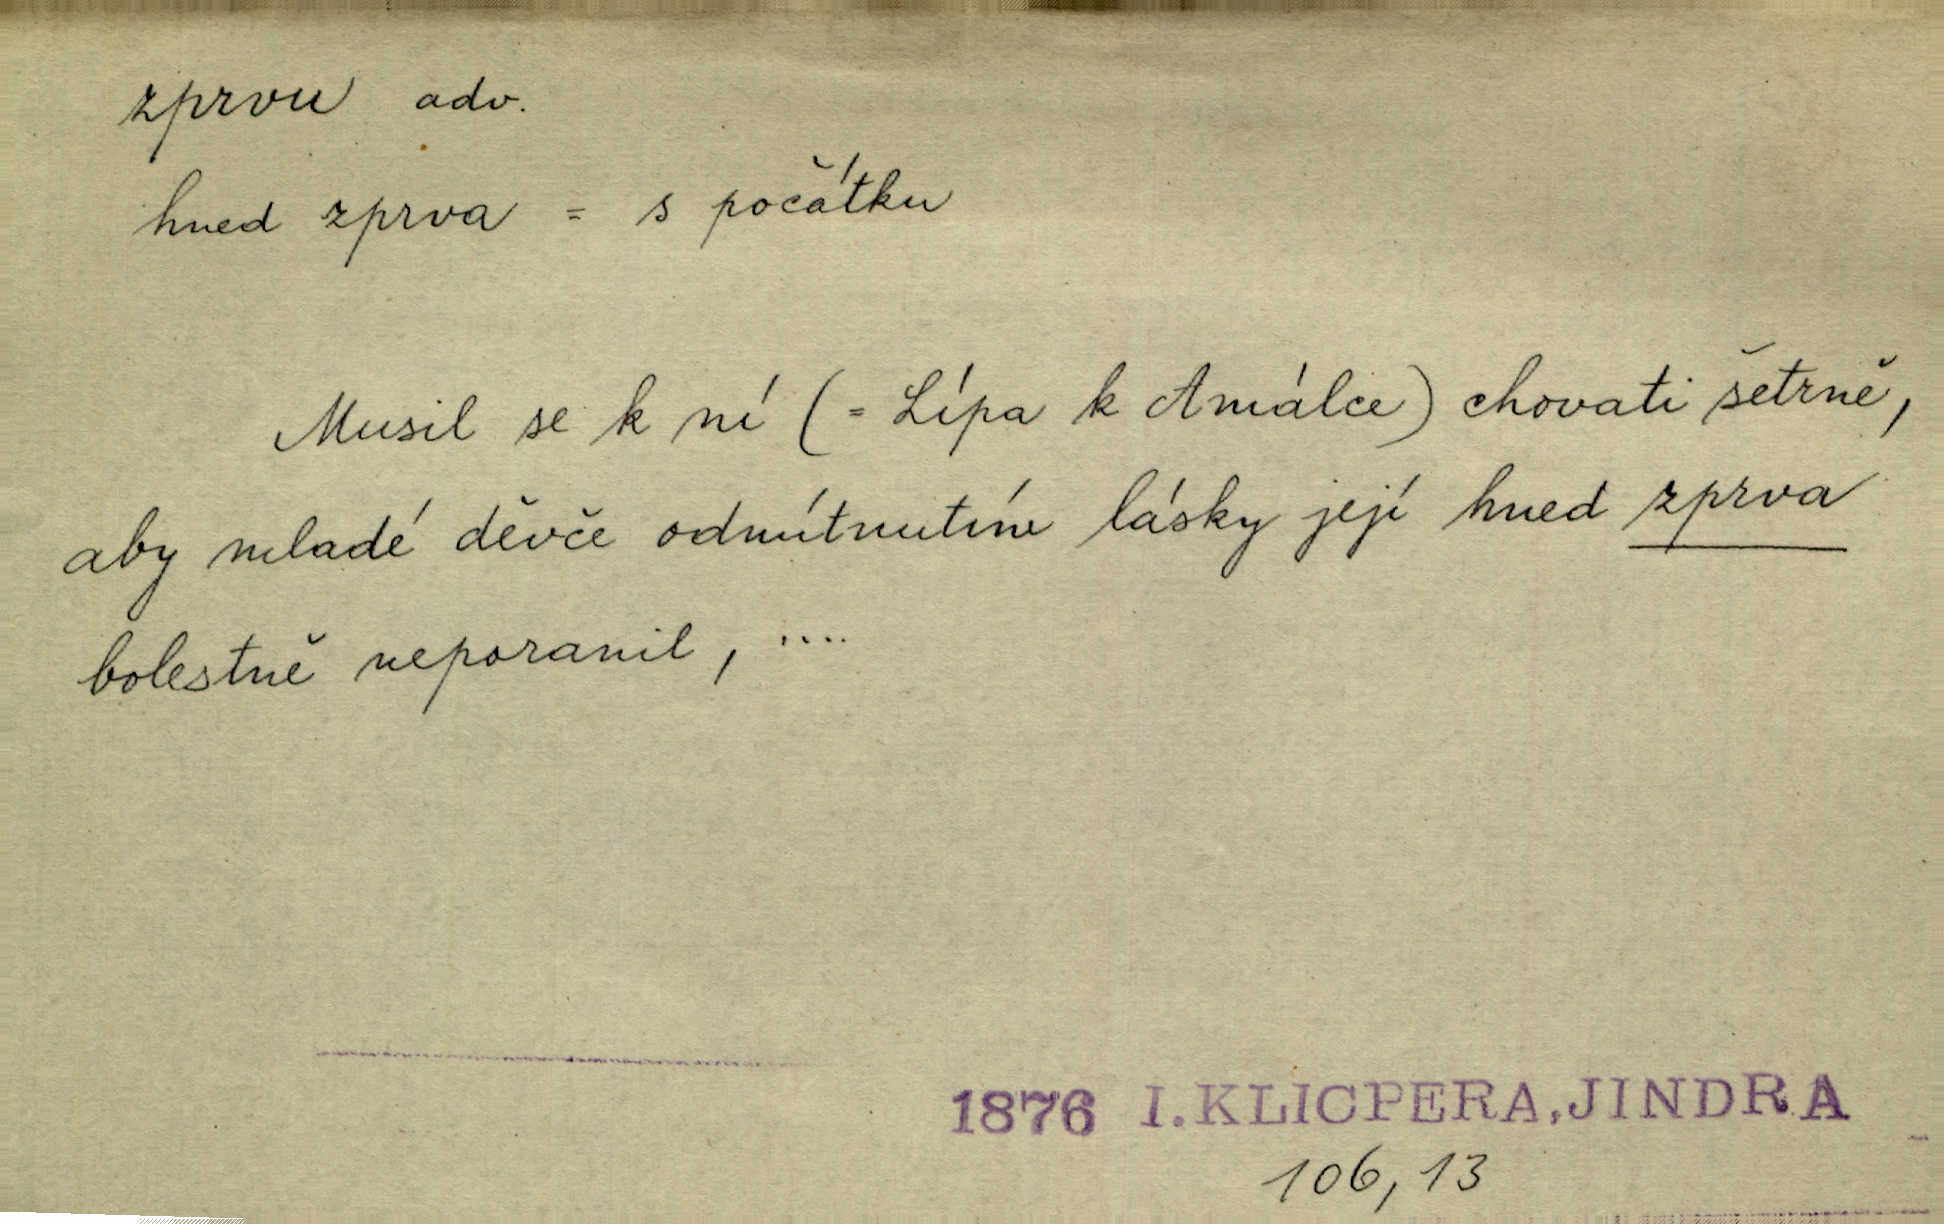 zprvu adv.
hned zprva = s počátku
Musil se k ní (= Lípa k Amálce) chovati šetrně,
aby mladé děvče odmítnutím lásky její hned zprva
bolestně neporanil, ....
1876 I. KLICPERA, JINDRA
106, 13